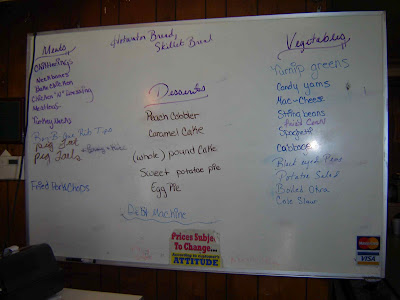 Hotwater Bread
Skillet Bread
Meats
Chitterlings
Neckbones
Baked Chicken
Chicken "N" Dressing
Meatloaf
Turkey Necks
Rib Tips
Pig
Pig Tails
Fried Pork Chops
Desserts
Peach Cobbler
Caramel Cake
(whole) pound Cake
Sweet potatoe pie
Egg Pie
Vegetables
Turnip greens
Candy yams
Mac-Cheese
String beans
Spaghetti
Cabbage
Black eyed Peas
Potatoe Salad
Boiled Okra
Cole Slaw
Prices Subjec
To Change...
According to customer's
ATTITUDE
MasterCard
VISA